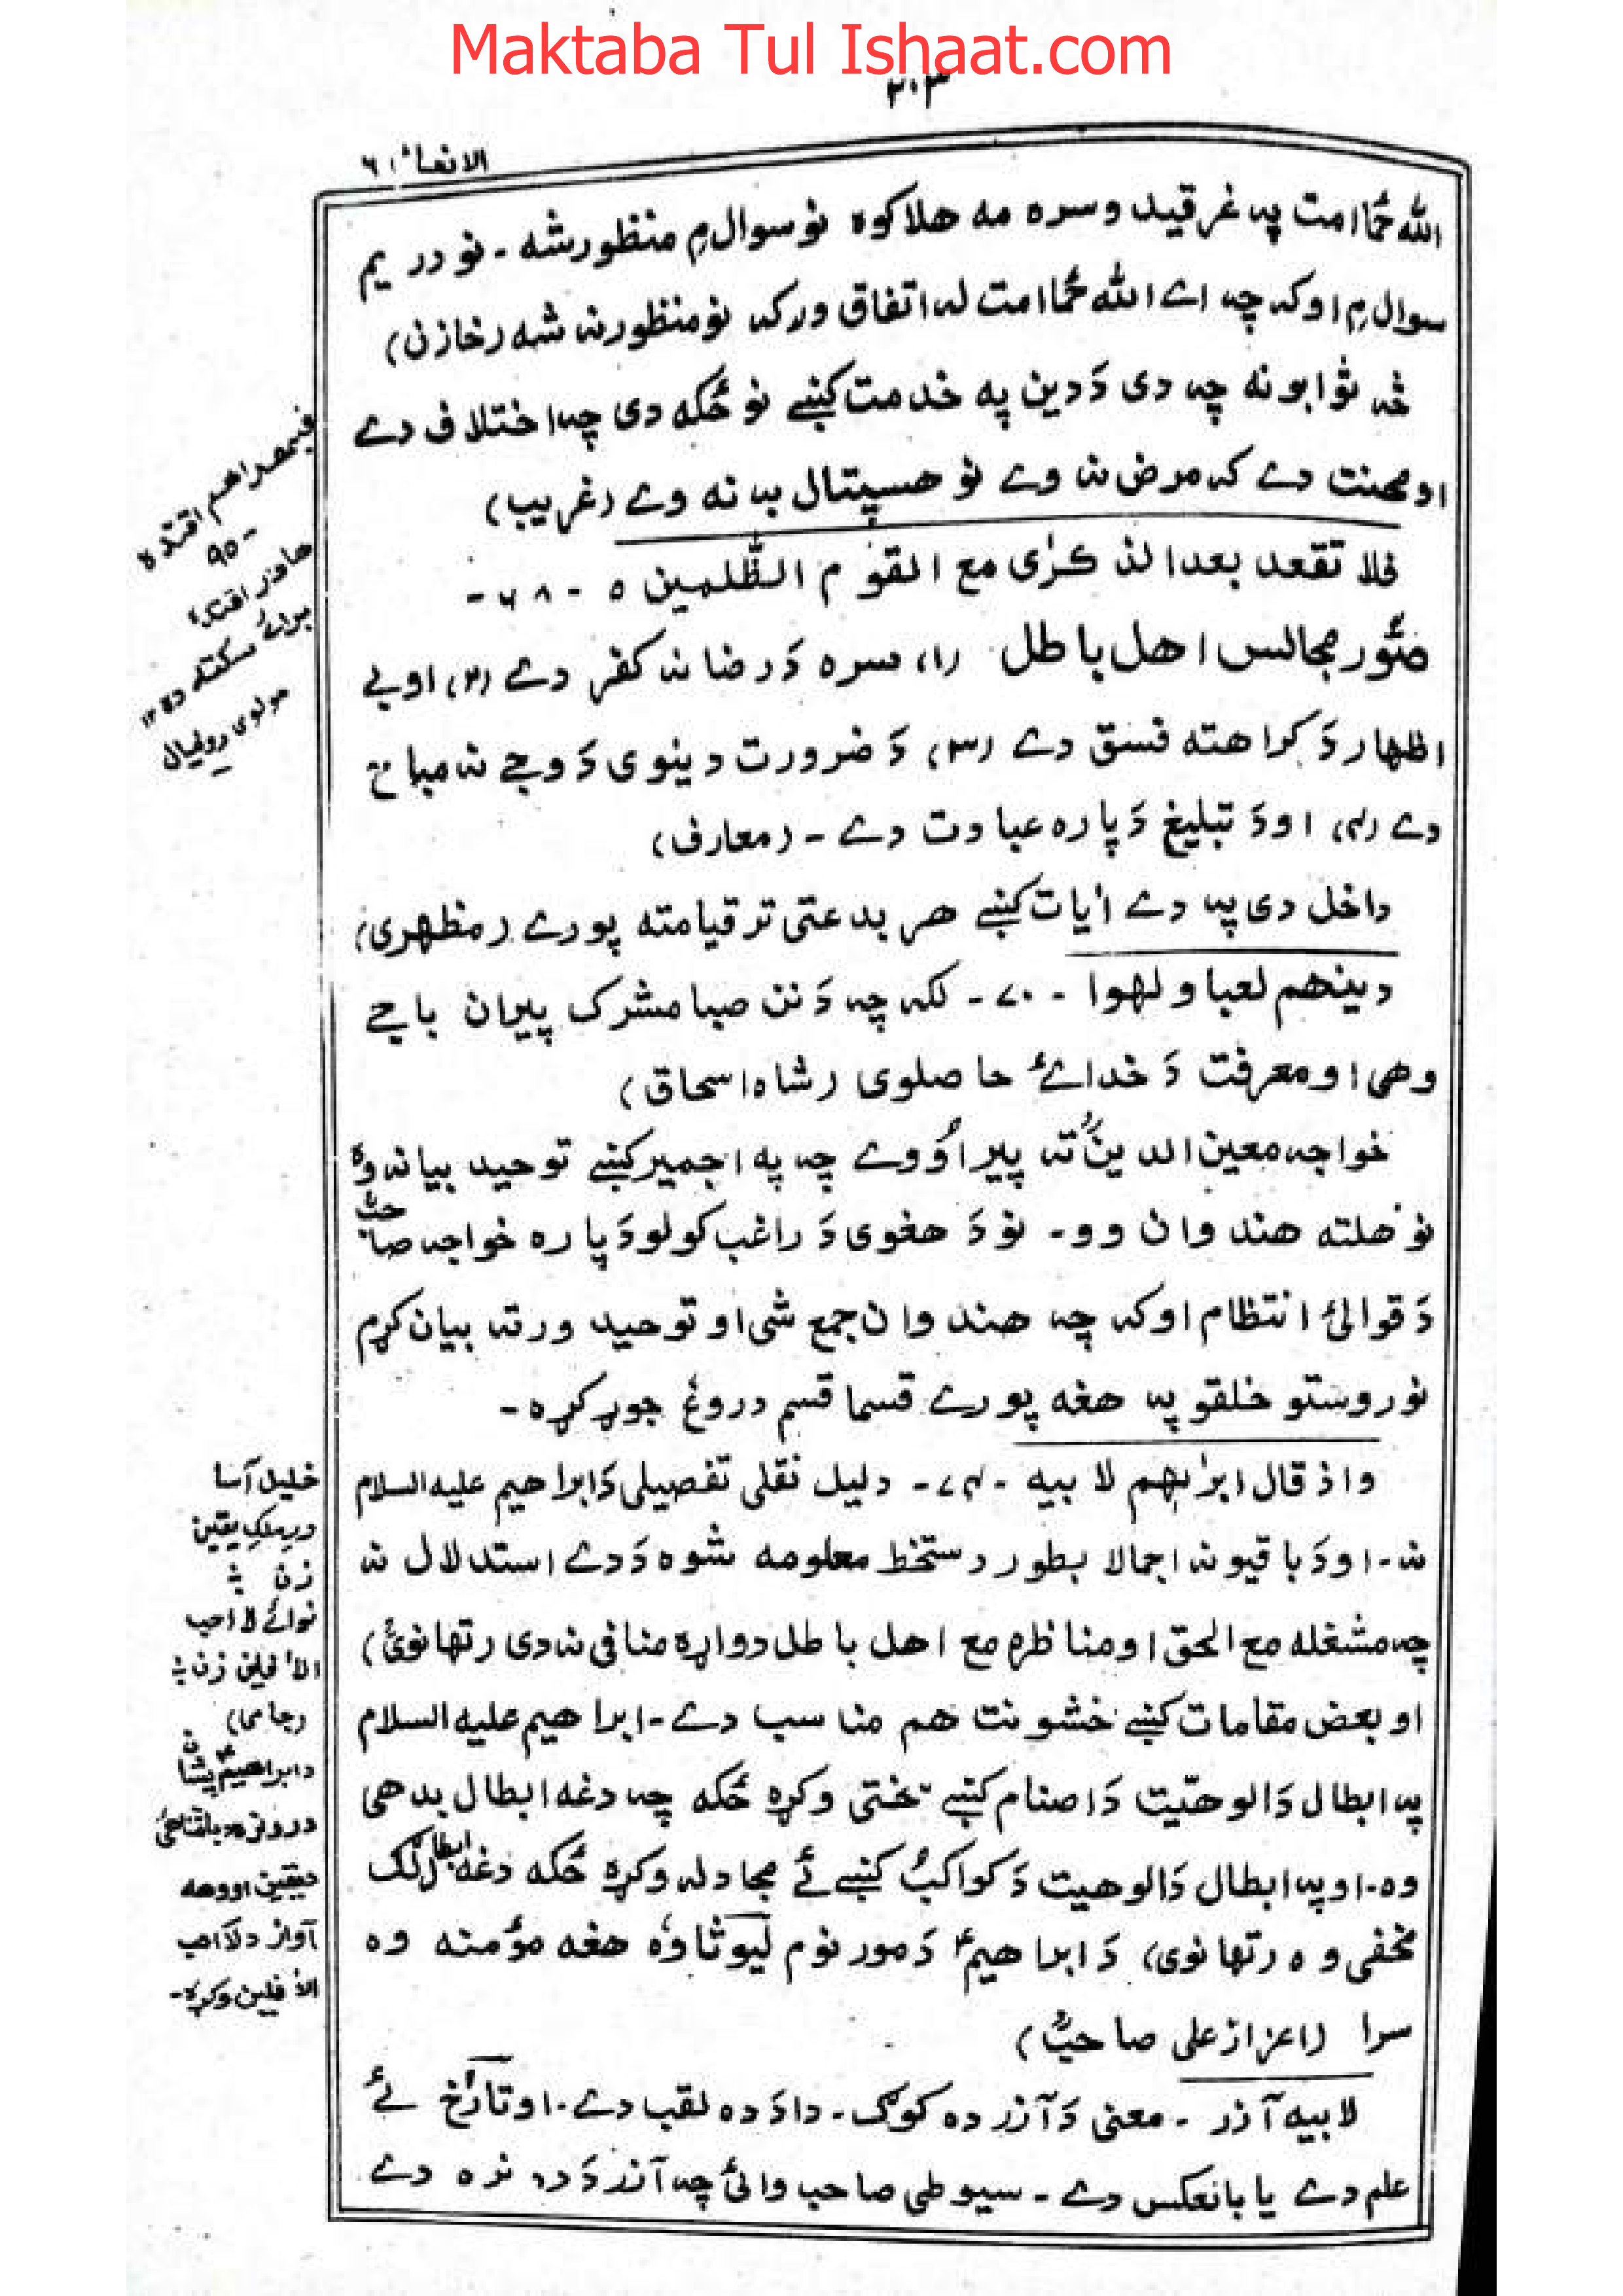 Maktaba Tul Ishaat.com
٢٠٣
الانعام ٦
الله ځما امت په غرقیدو سره مه هلاکوه نو سوال م منظور شه - نو دریم
سوال م اوکه چه اے الله ځما امت له اتفاق ورکه نو منظور نه شه (خازن)
څه ثوابونه چه دی دَ دین په خدمت کښے نو ځکه دی چه اختلاف دے
او محنت دے که مرض نه وے نو هسپتال به نه وے (غریب)
فلا تقعد بعد الذکرٰی مع القوم الظّٰلمین ٥ - ٦٨ -
صُور مجالس اهل باطل (١) سره دَ رضا نه کفر دے (٢) او بے
اظهار دَ کراهته فسق دے (٣) دَ ضرورت دینوی دَ وجے نه مباح
دے (٤) او دَ تبلیغ دَ پاره عبادت دے - (معارف)
داخل دی په دے اٰیات کښے هر بدعتی تر قیامته پورے (مظهری)
دینهم لعبا و لهوا - ٧٠ - لکه چه دَ نن صبا مشرک پیران باجے
وهی او معرفت دَ خدائے حاصلوی (شاه اسحاق)
خواجه معین الدینؒ ته پیر اوُوے چه په اجمیر کښے توحید بیانه وه
نو هلته هندوان وو - نو دَ هغوی دَ راغب کولو دَ پاره خواجه صاحب
دَ قوالئ انتظام اوکه چه هندوان جمع شی او توحید ورته بیان کړم
نو روستو خلقو په هغه پورے قسما قسم دروغ جوړ کړه -
واذ قال ابرٰهیم لابیه - ٧٤ - دلیل نقلی تفصیلی دَ ابراهیم علیه السلام
نه - او دَ باقیو نه اجمالا بطور دستخط معلومه شوه دَ دے استدلال نه
چه مشغله مع الحق او مناظره مع اهل باطل دواړه منافی نه دی (تهانویؒ)
او بعض مقامات کښے خشونت هم مناسب دے - ابراهیم علیه السلام
په ابطال دَ الوهیّت دَ اصنام کښے سختی وکړه ځکه چه دغه ابطال بدهی
وه - او په ابطال دَ الوهیت دَ کواکب کښے ئے مجادله وکړه ځکه دغه ابطال لک
مخفی وه (تهانوی) دَ ابراهیم ؑ دَ مور نوم لیوثا وه هغه مؤمنه وه
سرا (اعزاز علی صاحبؒ)
لابیه آذر - معنی دَ آذر ده کوګ - دا دَ ده لقب دے - او تارخ ئے
علم دے یا بالعکس دے - سیوطی صاحب وائی چه آذر دَ ده نره دے
فبهدٰهم اقتده
٩٠ -
خلیل آسا
در ملک یقین
زن
نوائے لا احب
الاٰفلین زن
(جامی)
د ابراهیمؑ پشان
دروزه
دیقین او وهه
آواز د لا احب
الاٰفلین وکړه -